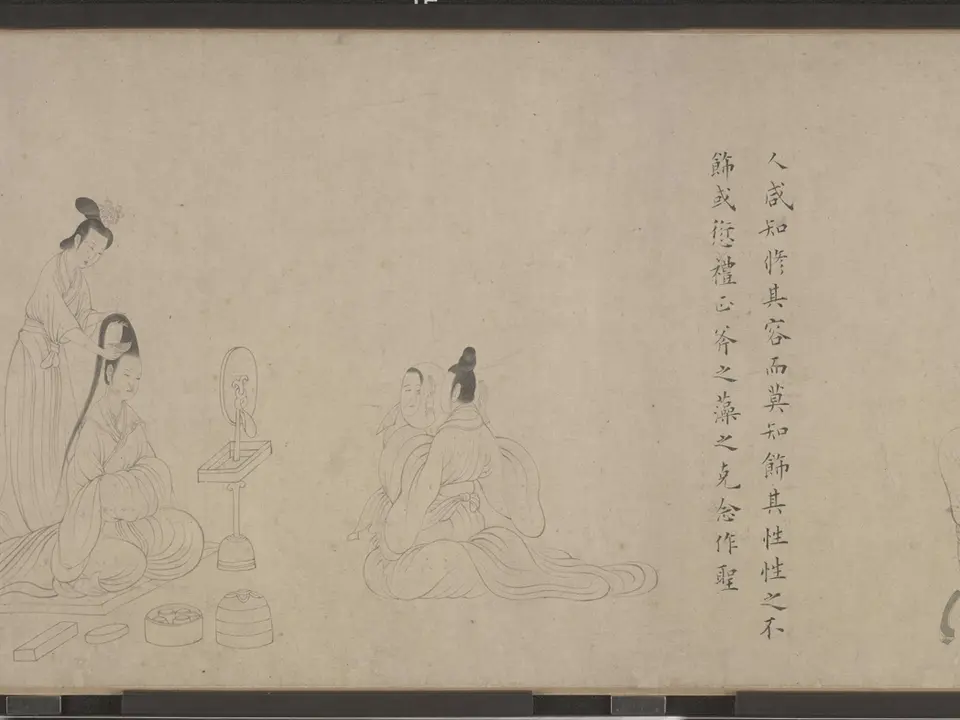 人咸知修其容而莫知飾其性性之不
飾或愆禮正斧之藻之克念作聖